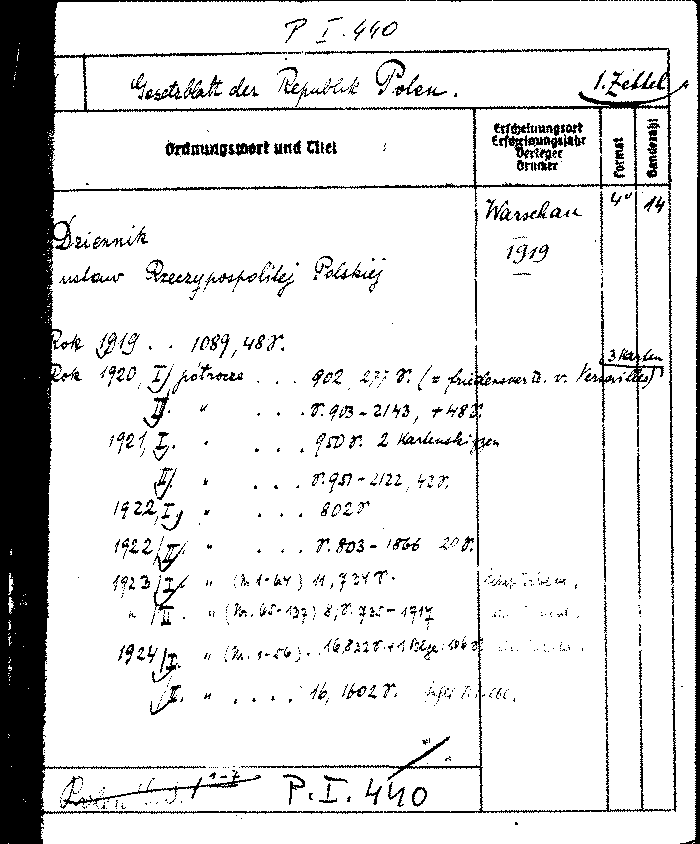 P I. 440
Gesetzblatt der Republik Polen.
1. Zettel
Ordnungswort und Titel
Erscheinungsort
Erscheinungsjahr
Verleger
Drucker
Format
Bandezahl
Warschau
4°
14
Dziennik
1919
ustaw Rzeczypospolitej Polskiéj
Rok 1919 . . 1089, 48 S.
3 Karten
Rok 1920, I/ półrocze . . . 902, 277 S. (= friedensver v. Versailles)
II. " . . . S. 903-2143, +48 S.
1921, I. " . . . 950 S. 2 Kartenskizzen
II/. " . . . S. 951-2122, 42 S.
1922, I, " . . . 802 S
1922/II/. " . . . S. 803-1866 20 S.
1923/I/. " (Nr. 1-64) 11, 734 S.
" /II. " (Nr. 65-137) 8, S. 735-1917
1924/I. " (Nr. 1-56) . . 16, 822 S + 1 Blge: 106 S
II. " . . . . 16, 1602 S.
P. I. 440